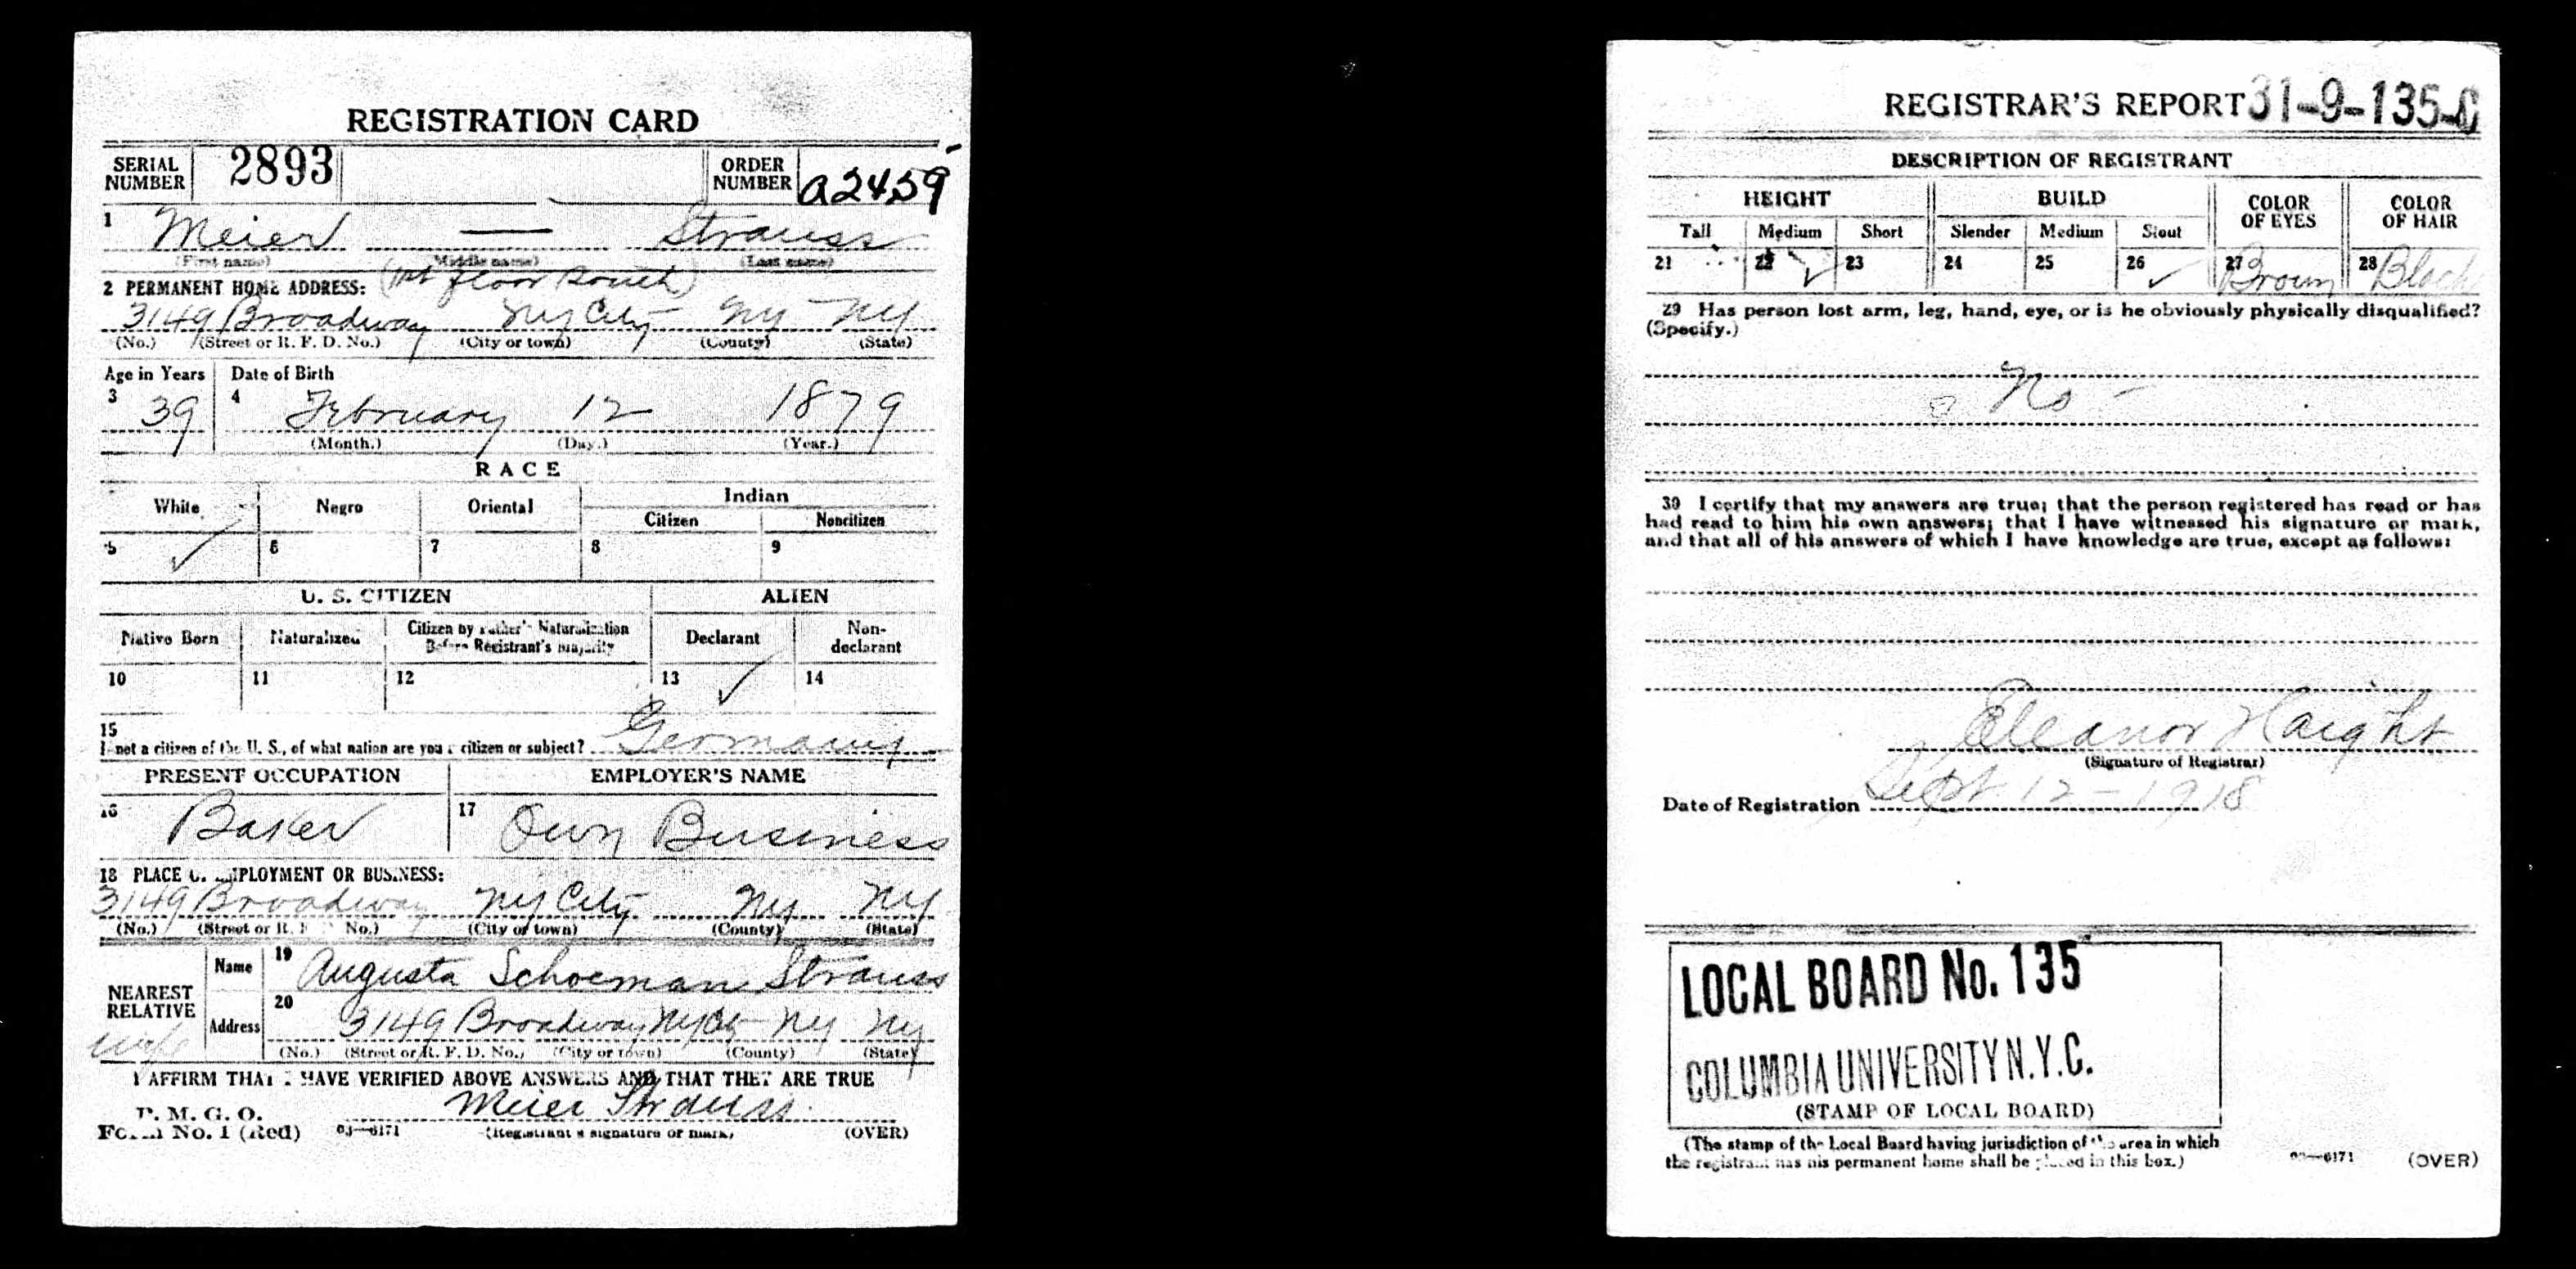 REGISTRATION CARD
SERIAL NUMBER 2893 ORDER NUMBER A2459
1 Meier — Strauss
(First name) (Middle name) (Last name)
(1st floor South)
2 PERMANENT HOME ADDRESS:
3149 Broadway NY City NY NY
(No.) (Street or R. F. D. No.) (City or town) (County) (State)
Age in Years Date of Birth
3 39 4 February 12 1879
(Month.) (Day.) (Year.)
RACE
White Negro Oriental Indian
Citizen Noncitizen
5 ✓ 6 7 8 9
U. S. CITIZEN ALIEN
Native Born Naturalized Citizen by Father's Naturalization Before Registrant's Majority Declarant Non-declarant
10 11 12 13 ✓ 14
15
If not a citizen of the U. S., of what nation are you a citizen or subject? Germany
PRESENT OCCUPATION EMPLOYER'S NAME
16 Baker 17 Own Business
18 PLACE OF EMPLOYMENT OR BUSINESS:
3149 Broadway NY City NY NY
(No.) (Street or R. F. D. No.) (City or town) (County) (State)
NEAREST RELATIVE Name 19 Augusta Schoeman Strauss
wife Address 20 3149 Broadway NY City NY NY
(No.) (Street or R. F. D. No.) (City or town) (County) (State)
I AFFIRM THAT I HAVE VERIFIED ABOVE ANSWERS AND THAT THEY ARE TRUE
P. M. G. O.
Form No. 1 (Red) 03—6171 Meier Strauss
(Registrant's signature or mark) (OVER)
REGISTRAR'S REPORT 31-9-135-C
DESCRIPTION OF REGISTRANT
HEIGHT BUILD COLOR OF EYES COLOR OF HAIR
Tall Medium Short Slender Medium Stout
21 22 ✓ 23 24 25 26 ✓ 27 Brown 28 Black
29 Has person lost arm, leg, hand, eye, or is he obviously physically disqualified?
(Specify.)
No -
30 I certify that my answers are true; that the person registered has read or has
had read to him his own answers; that I have witnessed his signature or mark,
and that all of his answers of which I have knowledge are true, except as follows:
Eleanor Haight
(Signature of Registrar)
Date of Registration Sept 12 - 1918
LOCAL BOARD No. 135
COLUMBIA UNIVERSITY N.Y.C.
(STAMP OF LOCAL BOARD)
(The stamp of the Local Board having jurisdiction of the area in which
the registrant has his permanent home shall be placed in this box.)
03—6171 (OVER)